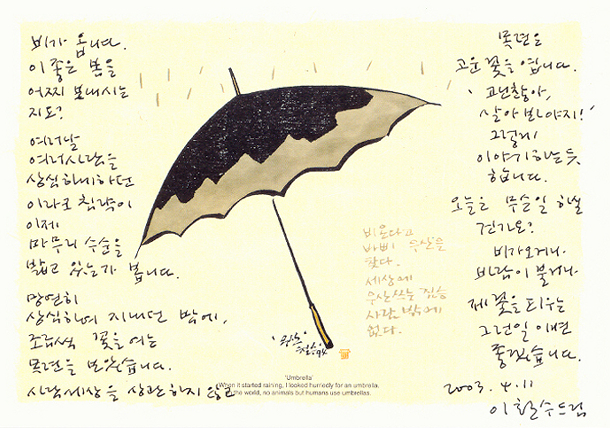 비가 옵니다.
이 좋은 봄을
어찌 보내시는
지요?
여러날
여러사람을
상심하게하던
이라크 침략이
이제
마무리 수순을
밟고 있는가 봅니다.
망연히
상심하여 지내던 밖에,
조금씩 꽃을 여는
목련을 보았습니다.
사람세상을 상관하지 않고
목련은
고운 꽃을 엽니다.
'괜찮아,
살아 봐야지!'
그렇게
이야기하는듯
합니다.
오늘은 무슨일 하실
건가요?
비가오거나
바람이 불거나
제 꽃을 피우는
그런일 이면
좋겠습니다.
2003. 4. 11
이철수드림
비온다고
바삐 우산을
폈다.
세상에
우산쓰는 짐승
사람 밖에
없다.
'우산'
철수 94
'Umbrella'
When it started raining, I looked hurriedly for an umbrella.
the world, no animals but humans use umbrellas.